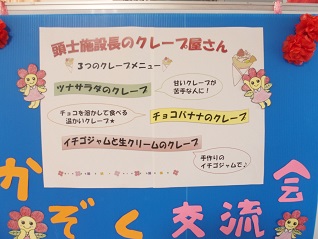 頭士施設長のクレープ屋さん
3つのクレープメニュー
ツナサラダのクレープ
甘いクレープが
苦手な人に!
チョコを溶かして食べる
温かいクレープ★
チョコバナナのクレープ
イチゴジャムと生クリームのクレープ
手作りの
イチゴジャムで♪
かぞく交流会